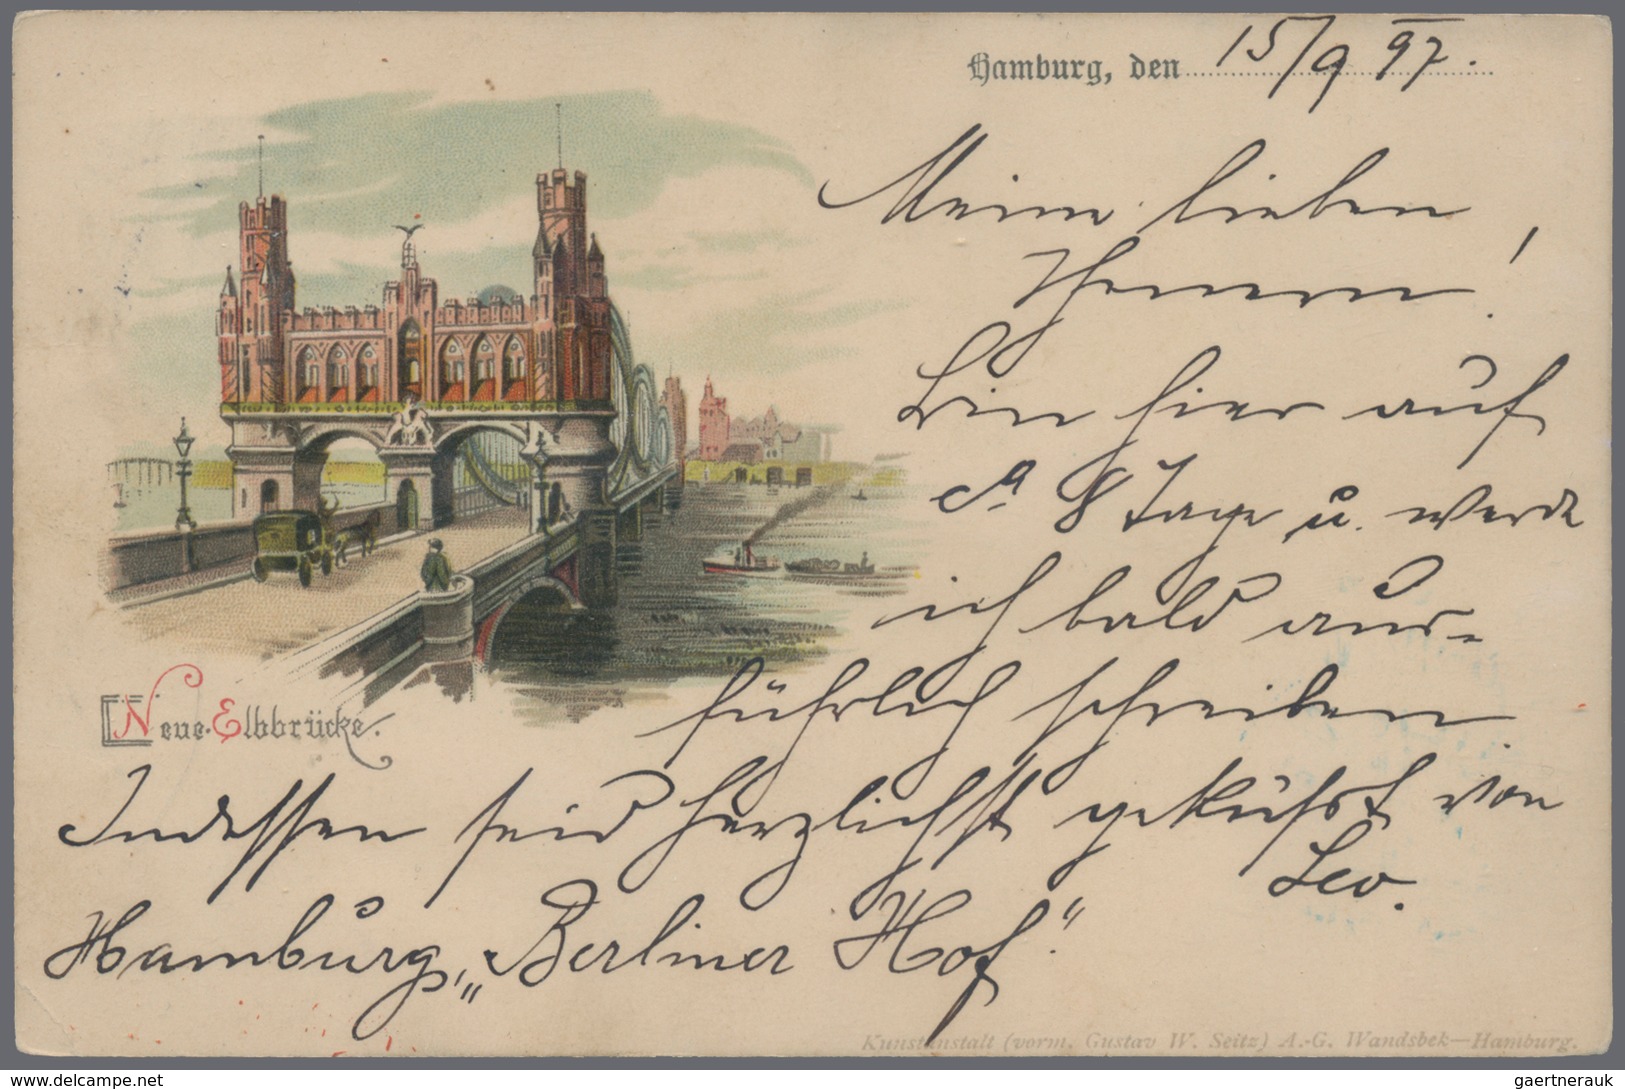 Hamburg, den 15/9 97.
Meine lieben
Bin hier auf
ca 8 Tage u. werde
ich bald aus-
führlich schreiben
Neue Elbbrücke.
Indessen seid herzlichst geküßt von
Leo.
Hamburg, „Berliner Hof".
Kunstanstalt (vorm. Gustav W. Seitz) A.-G. Wandsbek—Hamburg.
gaertnerauk / delcampe.net